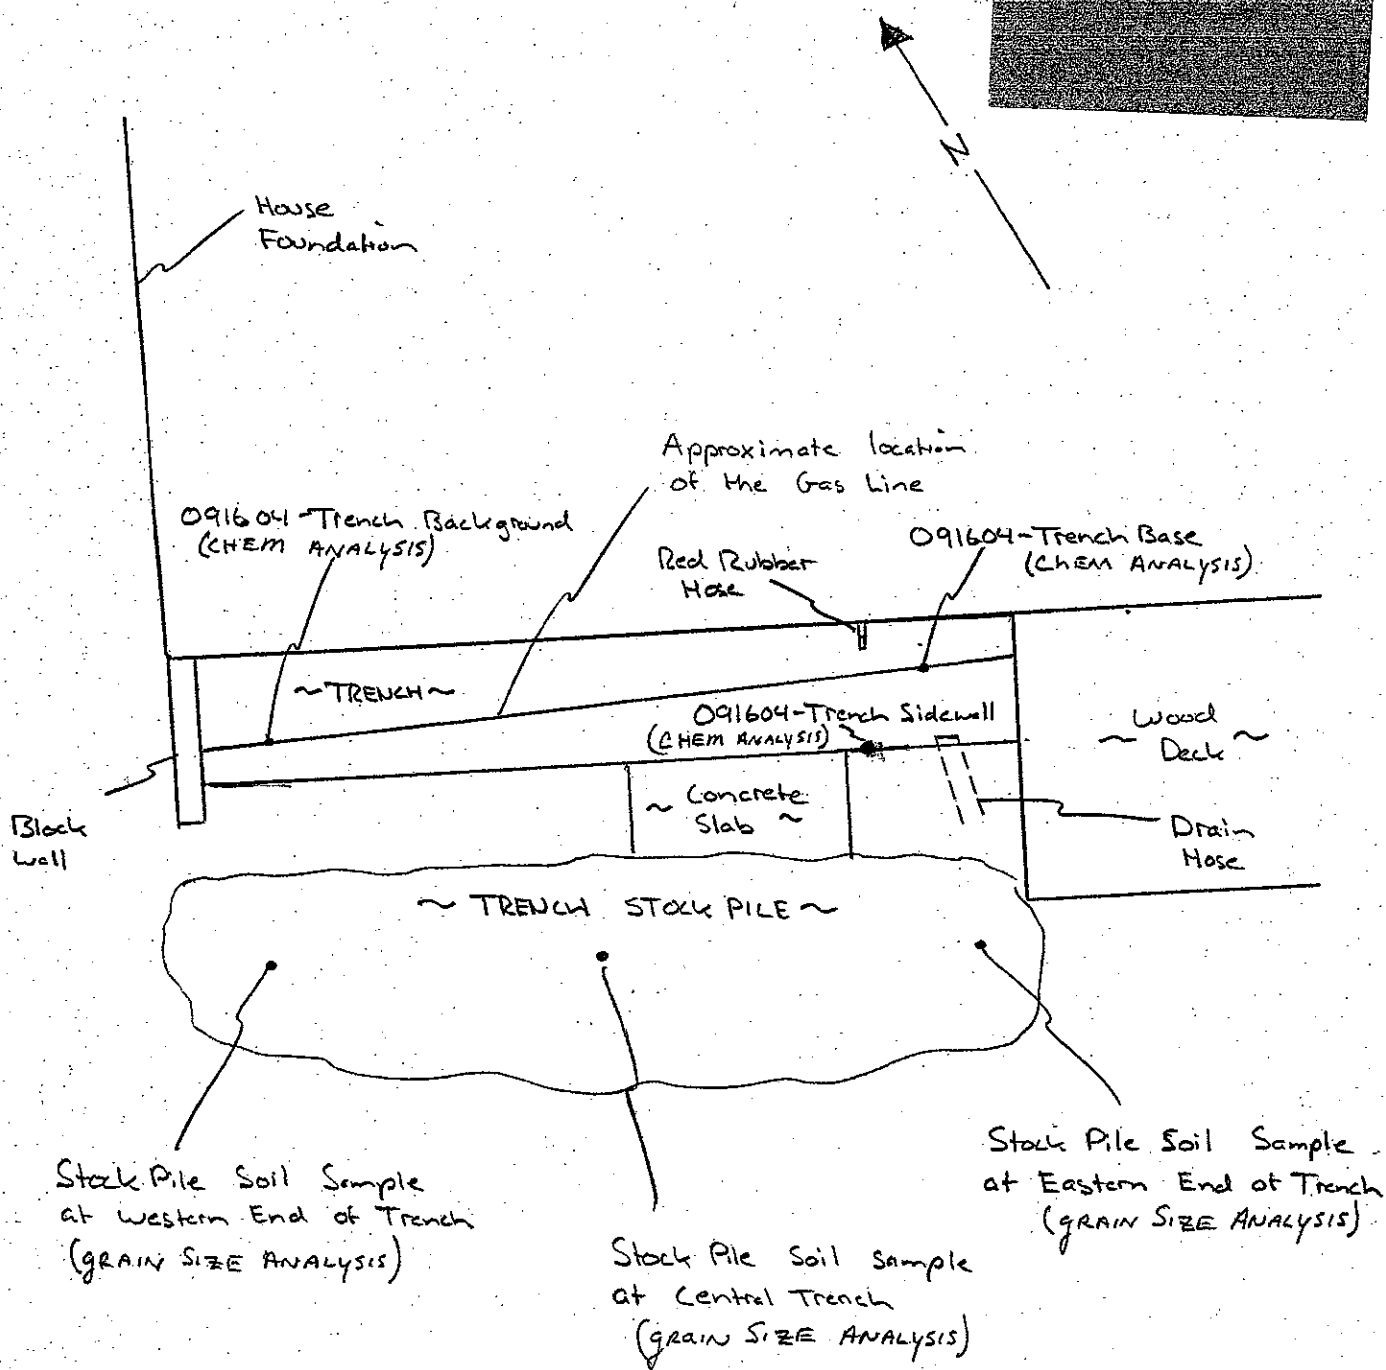 N
House
Foundation
Approximate location
of the Gas Line
091604-Trench Background
(CHEM ANALYSIS)
Red Rubber
Hose
091604-Trench Base
(CHEM ANALYSIS)
~TRENCH~
091604-Trench Sidewall
(CHEM ANALYSIS)
~ Wood
Deck ~
Block
Wall
~ Concrete
Slab ~
Drain
Hose
~ TRENCH STOCK PILE ~
Stock Pile Soil Sample
at Western End of Trench
(GRAIN SIZE ANALYSIS)
Stock Pile Soil Sample
at Central Trench
(GRAIN SIZE ANALYSIS)
Stock Pile Soil Sample
at Eastern End of Trench
(GRAIN SIZE ANALYSIS)